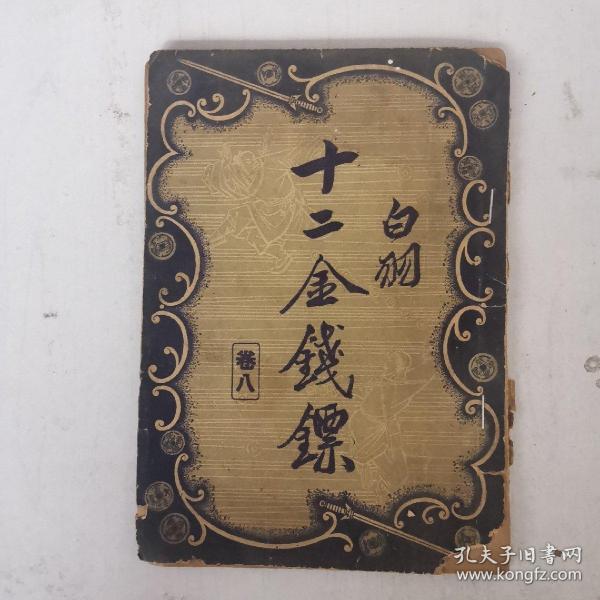 白羽
十二金錢鏢
卷八
孔夫子旧书网
www.kongfz.com